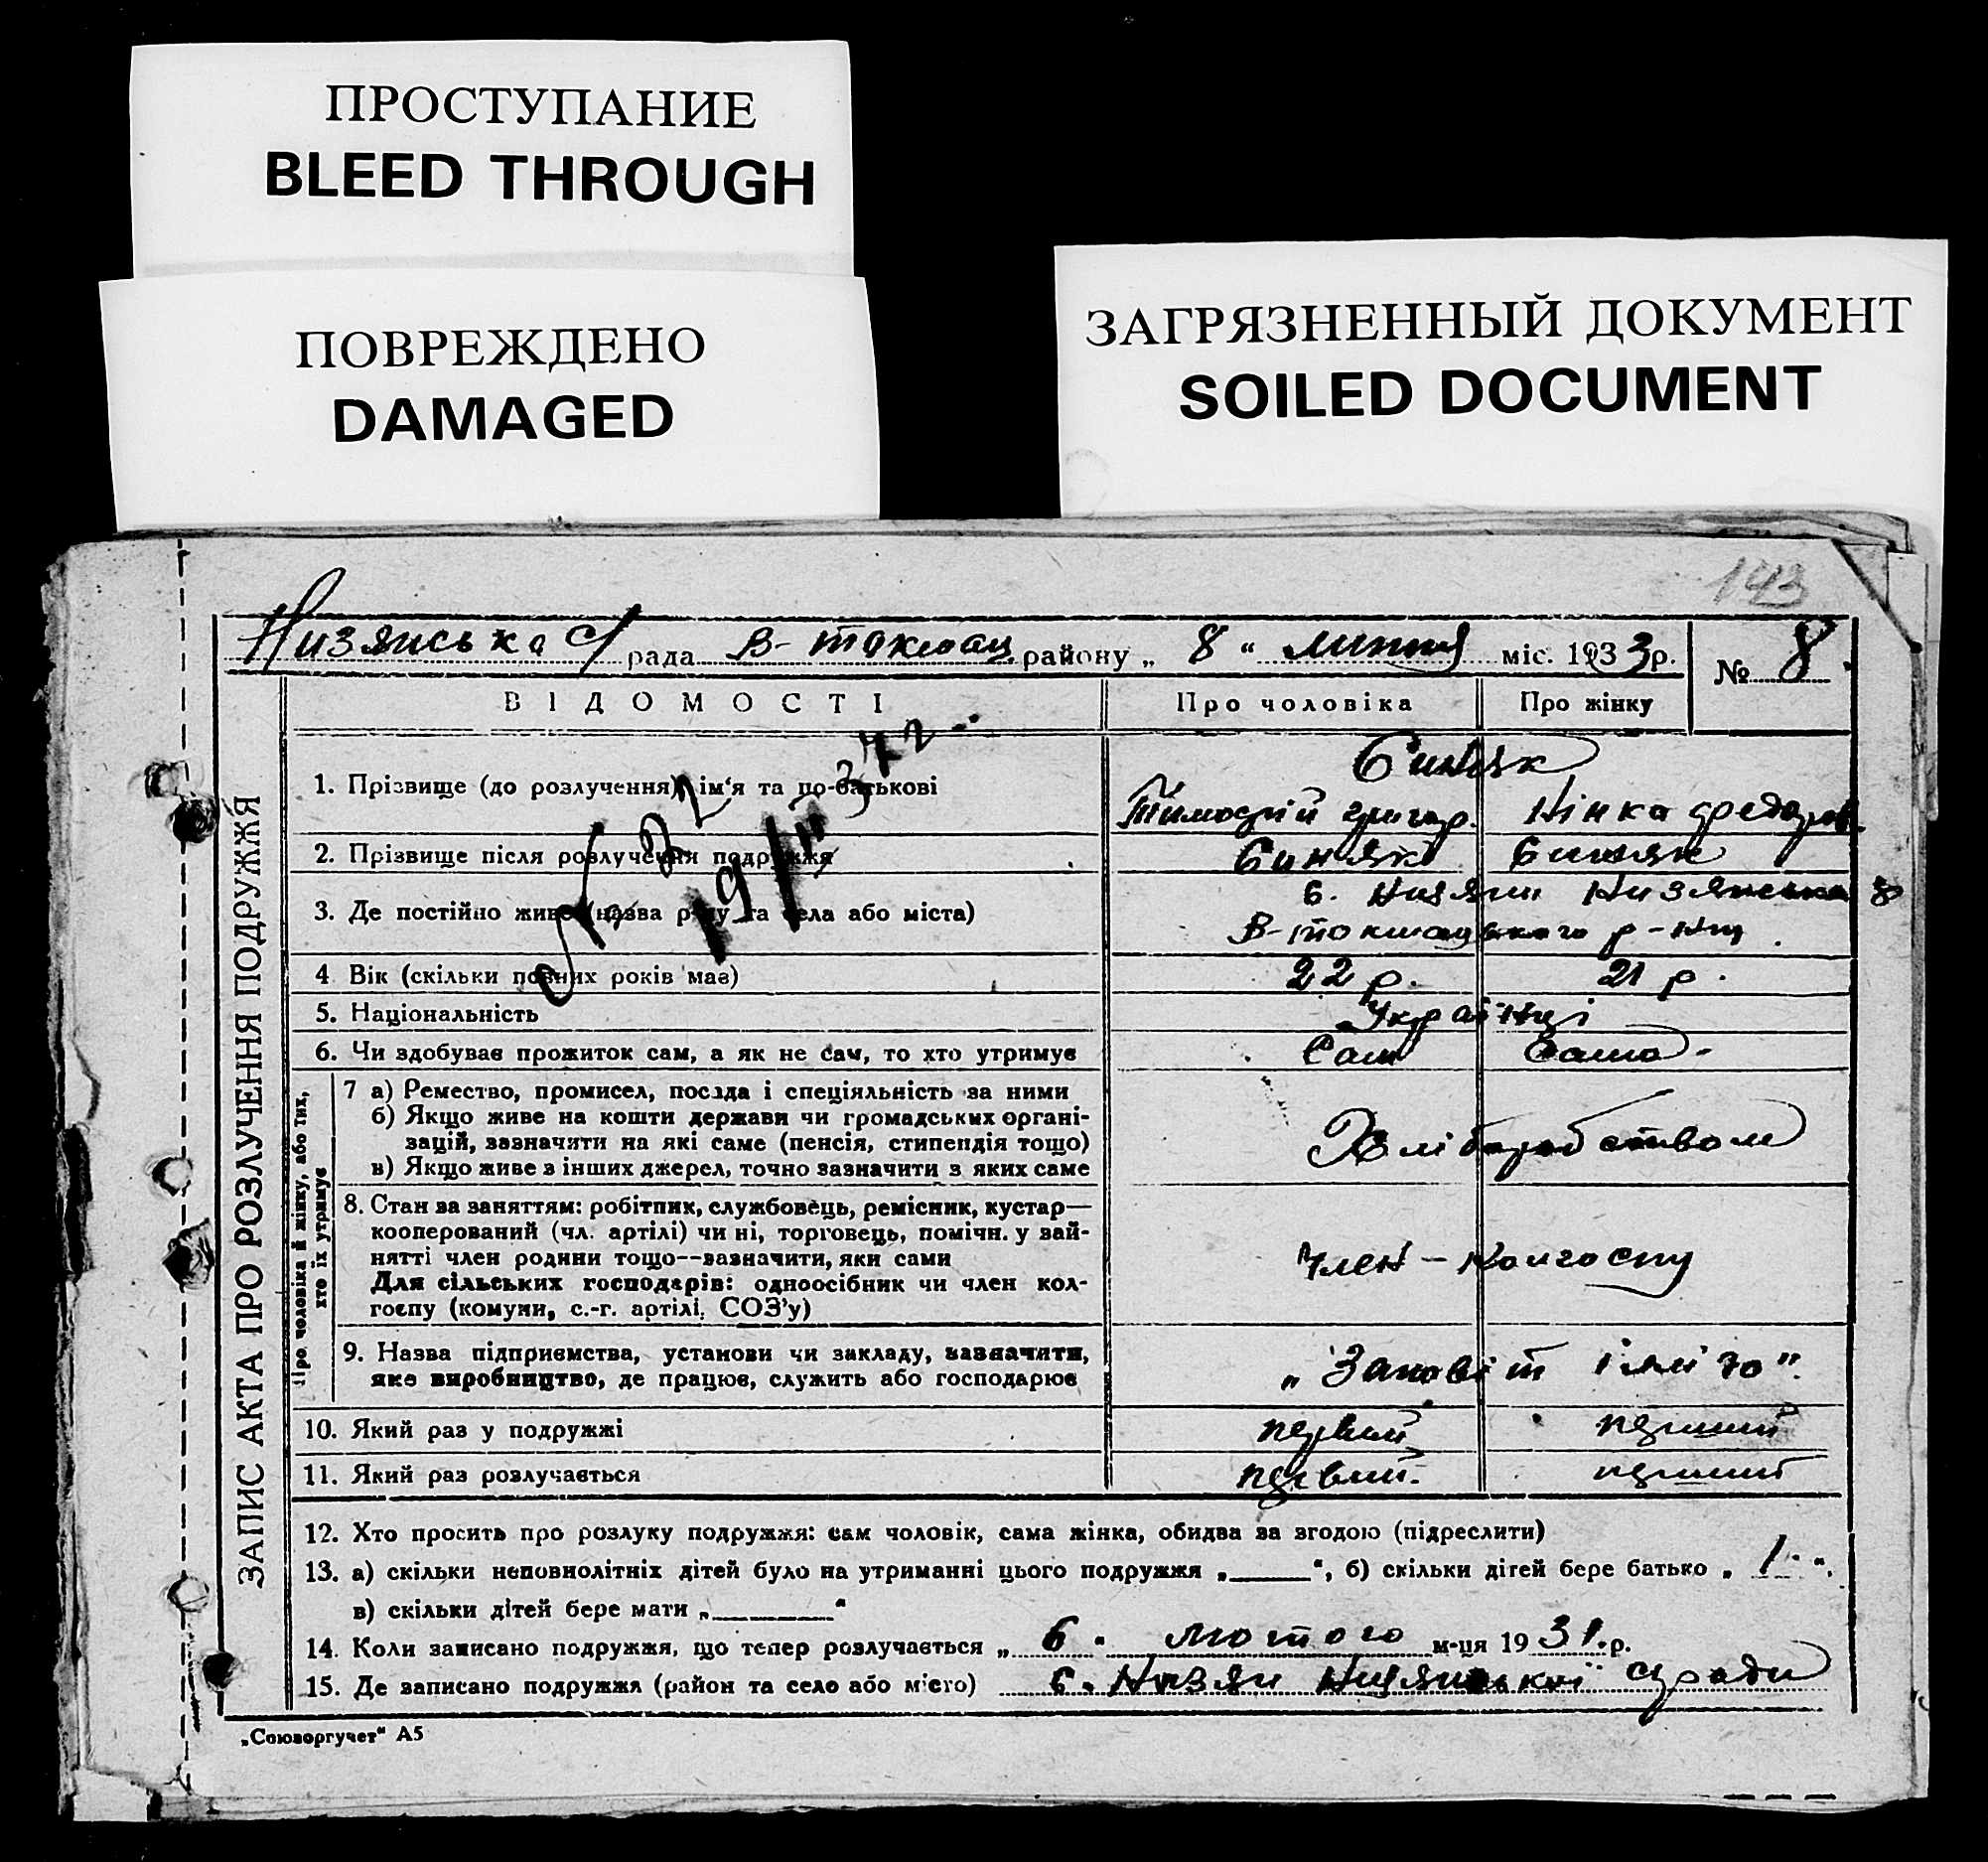 ПРОСТУПАНИЕ
BLEED THROUGH
ПОВРЕЖДЕНО
DAMAGED
ЗАГРЯЗНЕННЫЙ ДОКУМЕНТ
SOILED DOCUMENT
143
Низянська с/рада В-Токмац. району „ 8 “ липня міс. 1933 р.
№ 8.
ВІДОМОСТІ Про чоловіка Про жінку
ЗАПИС АКТА ПРО РОЗЛУЧЕННЯ ПОДРУЖЖЯ
Синяк
1. Прізвище (до розлучення) ім‘я та по-батькові Тимофій григор. Нінка федоров.
2. Прізвище після розлучення подружжя Синяк Синяк
3. Де постійно живе (назва р-ну та села або міста) с. Низяни Низянська
В-токмацького р-ну
4 Вік (скільки повних років має) 22 р. 21 р.
5. Національність Українці
6. Чи здобуває прожиток сам, а як не сам, то хто утримує Сам Сама
Про чоловіка й жінку, або тих,
хто їх утримує
7 а) Ремество, промисел, посада і спеціяльність за ними
б) Якщо живе на кошти держави чи громадських органі-
зацій, зазначити на які саме (пенсія, стипендія тощо)
в) Якщо живе з інших джерел, точно зазначити з яких саме
Хліборобством
8. Стан за заняттям: робітник, службовець, ремісник, кустар—
кооперований (чл. артілі) чи ні, торговець, помічн. у зай-
нятті член родини тощо--зазначити, яки сами
Для сільських господарів: одноосібник чи член кол-
госпу (комуни, с.-г. артілі, СОЗ'у)
Член - колгоспу
9. Назва підприємства, установи чи закладу, зазначити,
яке виробництво, де працює, служить або господарює
„Заповіт Ілічо".
10. Який раз у подружжі первий перший
11. Який раз розлучається первий. перший
12. Хто просить про розлуку подружжя: сам чоловік, сама жінка, обидва за згодою (підреслити)
13. а) скільки неповнолітніх дітей було на утриманні цього подружжя „______“, б) скільки дітей бере батько „ 1 “.
в) скільки дітей бере мати „________“
14. Коли записано подружжя, що тепер розлучається „ 6 “ лютого м-ця 19 31. р.
15. Де записано подружжя (район та село або місто) с. Низяни Низянської с/ради
„Союзоргучет“ А5